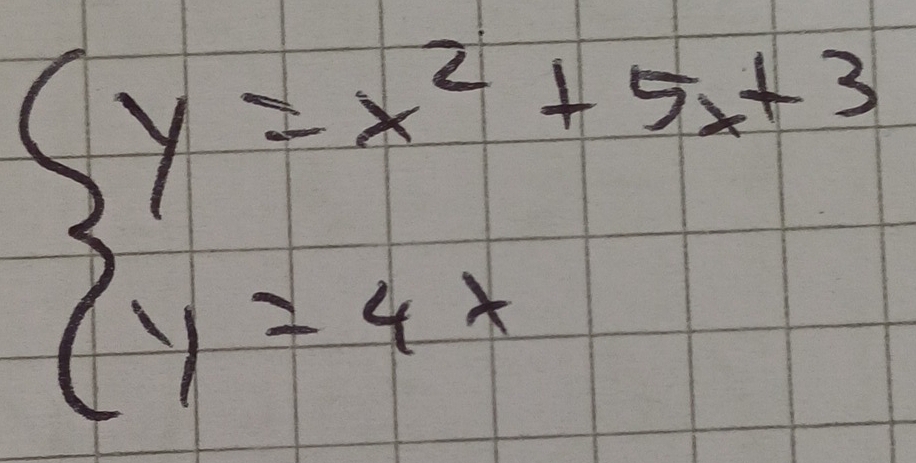 y = x² + 5x + 3
y = 4x